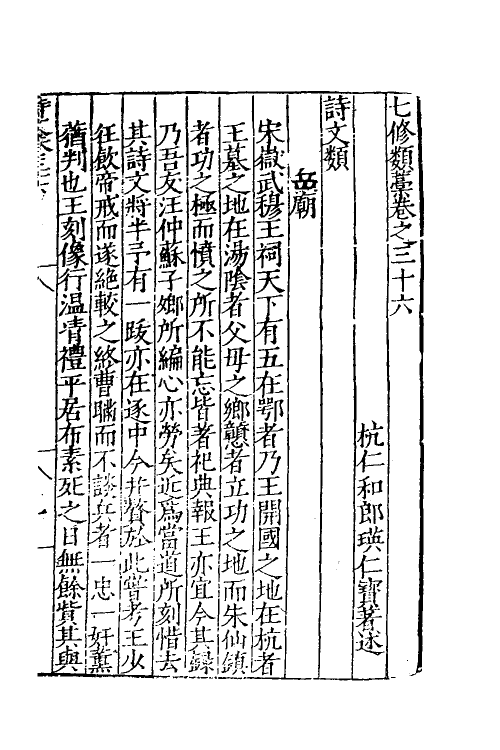 七修類藁卷之三十六
杭仁和郎瑛仁寶著述
詩文類
岳廟
宋嶽武穆王祠天下有五在鄂者乃王開國之地在杭者
王墓之地在湯陰者父母之鄉戇者立功之地而朱仙鎮
者功之極而憤之所不能忘皆著祀典報王亦宜今其錄
乃吾友汪仲蘇子嫏所編心亦勞矣近爲當道所刻惜去
其詩文將半予有一跋亦在逐中今并贅於此嘗考王少
徃飲帝戒而遂絶較之終曹聽而不談兵者一忠一奸薰
蕕判也王刻像行温凊禮平居布素死之日無餘貲其與